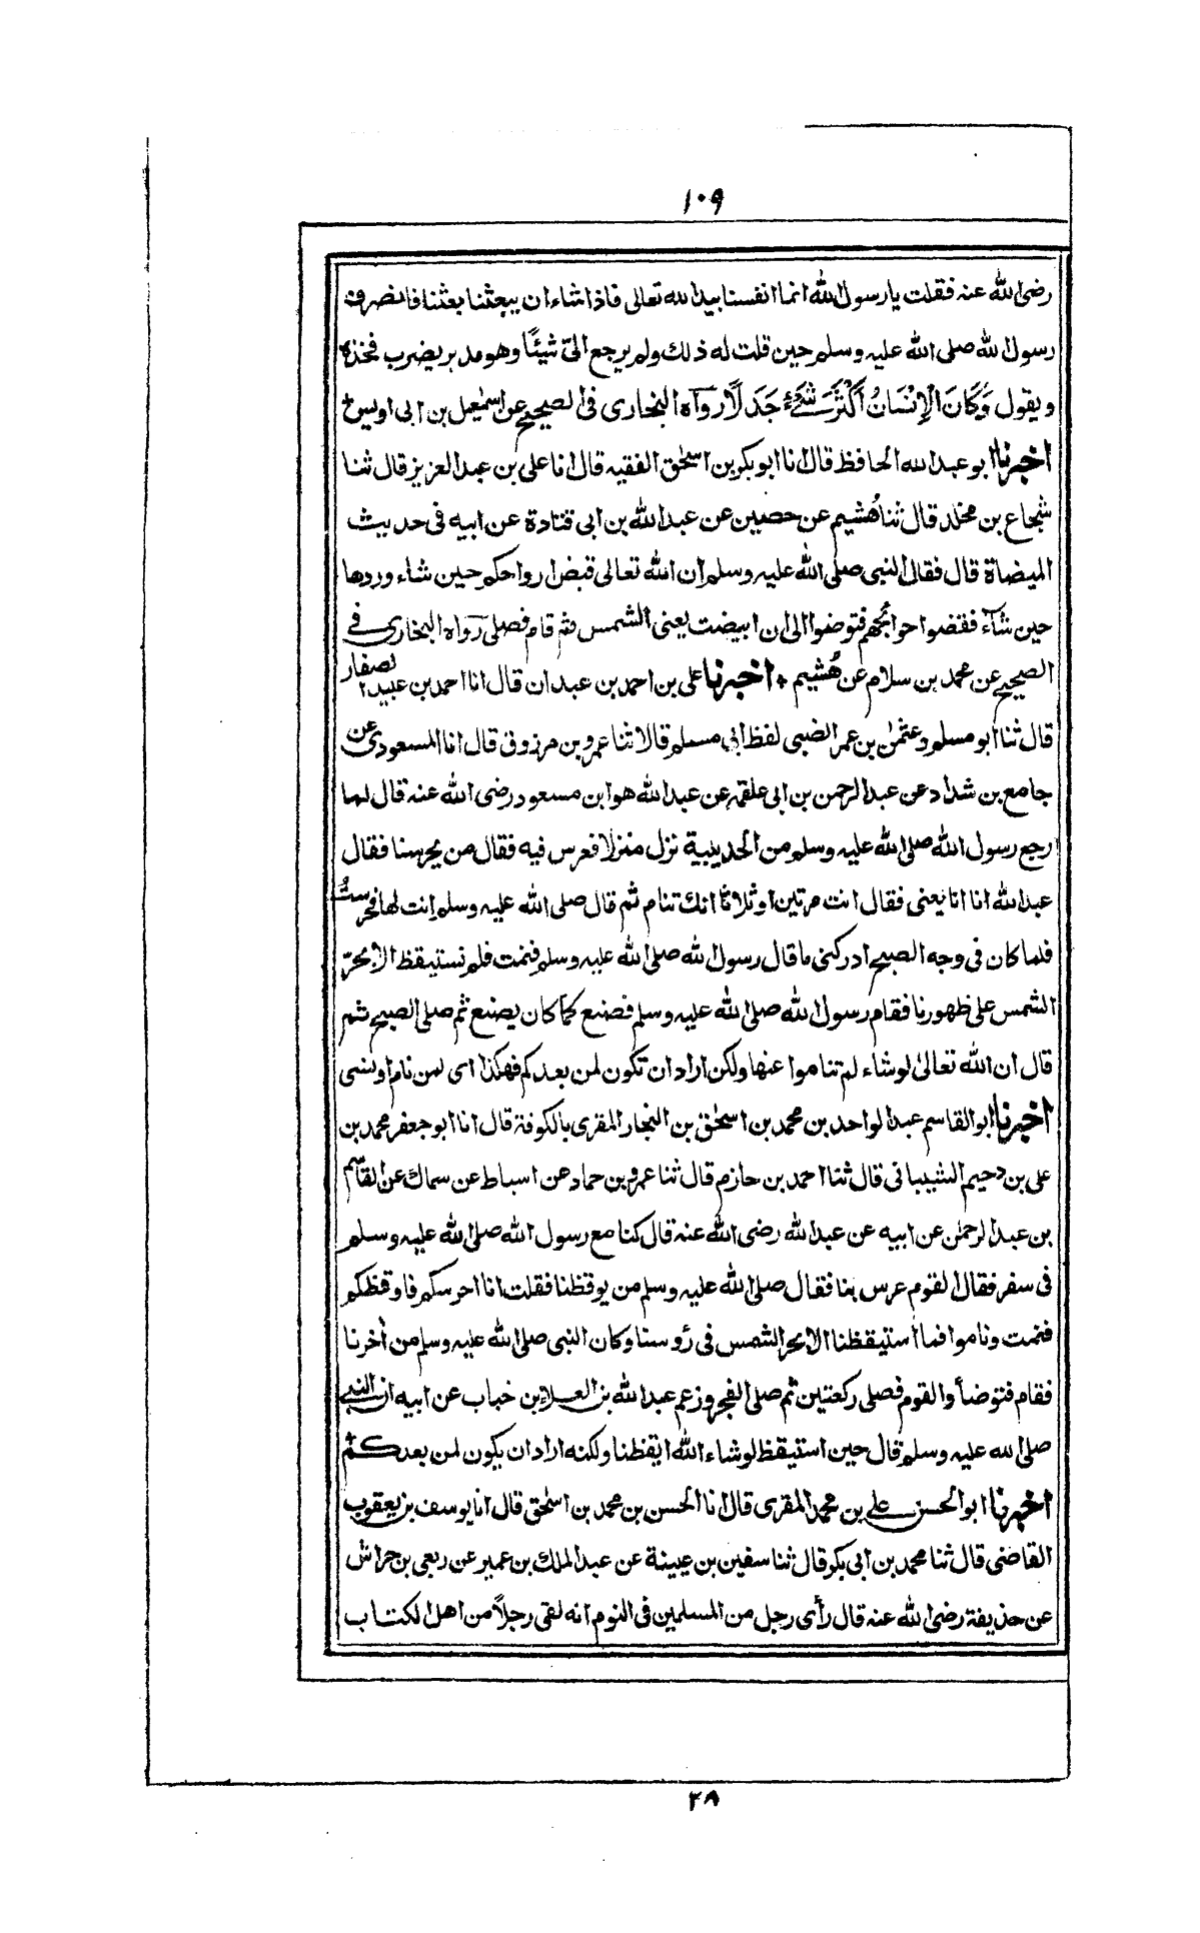 ١٠٩
رضى الله عنه فقلت يا رسول الله انما انفسنا بيد الله تعالى فاذا شاء ان يبعثنا بعثنا فانصرف
رسول الله صلى الله عليه وسلم حين قلت له ذلك ولم يرجع الىّ شيئًا وهو مدبر يضرب فخذه
ويقول وَكَانَ الْإِنْسَانُ أَكْثَرَ شَيْءٍ جَدَلًا رواه البخارى فى الصحيح عن اسمٰعيل بن ابى اويس
اخبرنا ابو عبد الله الحافظ قال انا ابو بكر بن اسحٰق الفقيه قال انا على بن عبد العزيز قال ثنا
شجاع بن مخلد قال ثنا هُشيم عن حصين عن عبد الله بن ابى قتادة عن ابيه فى حديث
الميضاة قال فقال النبى صلى الله عليه وسلم ان الله تعالى قبض ارواحكم حين شاء وردها
حين شآء فقضوا حوائجهم فتوضوا الى ان ابيضت يعنى الشمس ثم قام فصلى رواه البخارى فى
الصحيح عن محمد بن سلام عن هُشيم ٭ اخبرنا على بن احمد بن عبدان قال انا احمد بن عبيد الصفار
قال ثنا ابو مسلم وعثمٰن بن عمر الضبى لفظ ابى مسلم قالا ثنا عمرو بن مرزوق قال انا المسعودى عن
جامع بن شداد عن عبد الرحمن بن ابى علقمة عن عبد الله هو ابن مسعود رضى الله عنه قال لما
رجع رسول الله صلى الله عليه وسلم من الحديبية نزل منزلا فعرس فيه فقال من يحرسنا فقال
عبد الله انا انا يعنى فقال انت مرتين او ثلاثا انك تنام ثم قال صلى الله عليه وسلم انت لها فحرستُ
فلما كان فى وجه الصبح ادركنى ما قال رسول الله صلى الله عليه وسلم فنمت فلم نستيقظ الا بحرّ
الشمس على ظهورنا فقام رسول الله صلى الله عليه وسلم فصنع كما كان يصنع ثم صلى الصبح ثم
قال ان الله تعالىٰ لو شاء لم تناموا عنها ولكن اراد ان تكون لمن بعدكم فهكذا اى لمن نام او نسى
اخبرنا ابو القاسم عبد الواحد بن محمد بن اسحٰق بن النجار المقرى بالكوفة قال انا ابو جعفر محمد بن
على بن دحيم الشيبانى قال ثنا احمد بن حازم قال ثنا عمرو بن حماد عن اسباط عن سماك عن القاسم
بن عبد الرحمٰن عن ابيه عن عبد الله رضى الله عنه قال كنا مع رسول الله صلى الله عليه وسلم
فى سفر فقال القوم عرس بنا فقال صلى الله عليه وسلم من يوقظنا فقلت انا احرسكم فاوقظكم
فنمت وناموا فما استيقظنا الا بحر الشمس فى رؤسنا وكان النبى صلى الله عليه وسلم من أخرنا
فقام فتوضأ والقوم فصلى ركعتين ثم صلى الفجر وزعم عبد الله بن العلاء بن خباب عن ابيه ان النبى
صلى الله عليه وسلم قال حين استيقظ لو شاء الله ايقظنا ولكنه اراد ان يكون لمن بعدكم
اخبرنا ابو الحسن على بن محمد المقرى قال انا الحسن بن محمد بن اسحٰق قال انا يوسف بن يعقوب
القاضى قال ثنا محمد بن ابى بكر قال ثنا سفين بن عيينة عن عبد الملك بن عمير عن ربعى بن حراش
عن حذيفة رضى الله عنه قال رأى رجل من المسلمين فى النوم انه لقى رجلًا من اهل الكتاب
٢٨